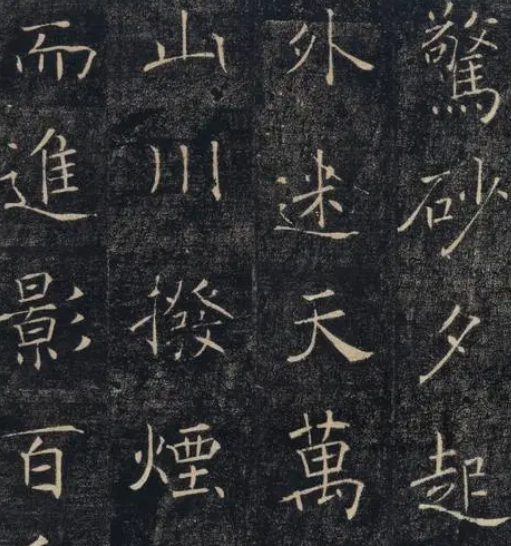 驚砂夕起
外迷天萬
山川撥煙
而進影百